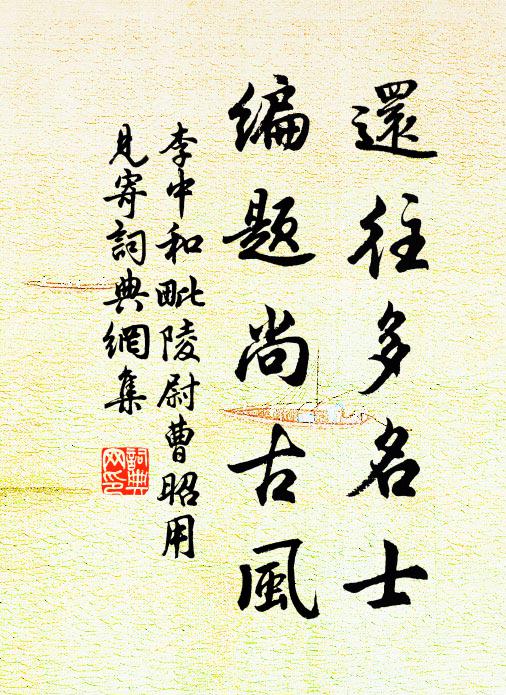 還往多名士
编题尚古風
李中和毗陵尉曹昭用
見寄詞典網集
詞典網印